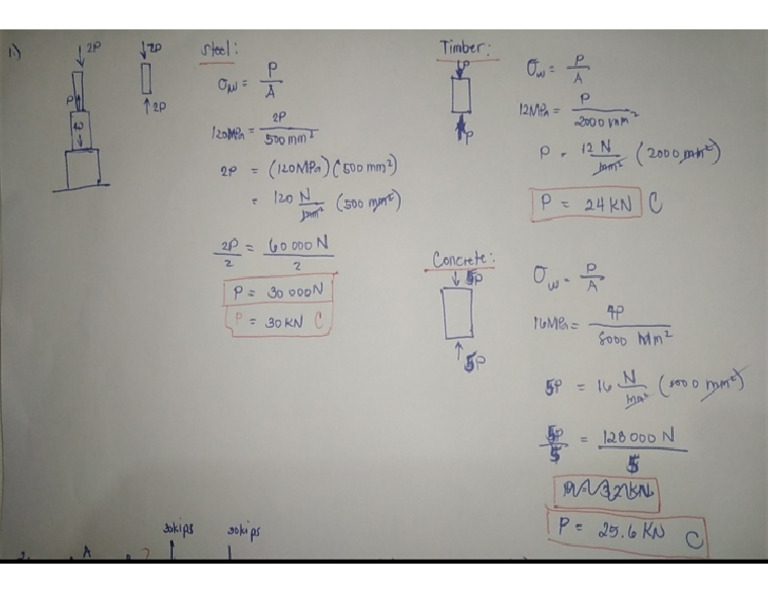 1.)
2P
P
4P
2P
2P
Steel:
σw = P/A
120MPa = 2P/500mm²
2P = (120MPa)(500mm²)
= 120 N/mm² (500mm²)
2P/2 = 60 000N/2
P = 30 000N
P = 30KN C
Timber:
P
P
σw = P/A
12MPa = P/2000mm²
P = 12 N/mm² (2000mm²)
P = 24KN C
Concrete:
5P
5P
σw = P/A
16MPa = 4P/8000 Mm²
5P = 16 N/mm² (8000mm²)
5P/5 = 128000N/5
P = 32KN
P = 25.6 KN C
30kips
30kips
2.
A